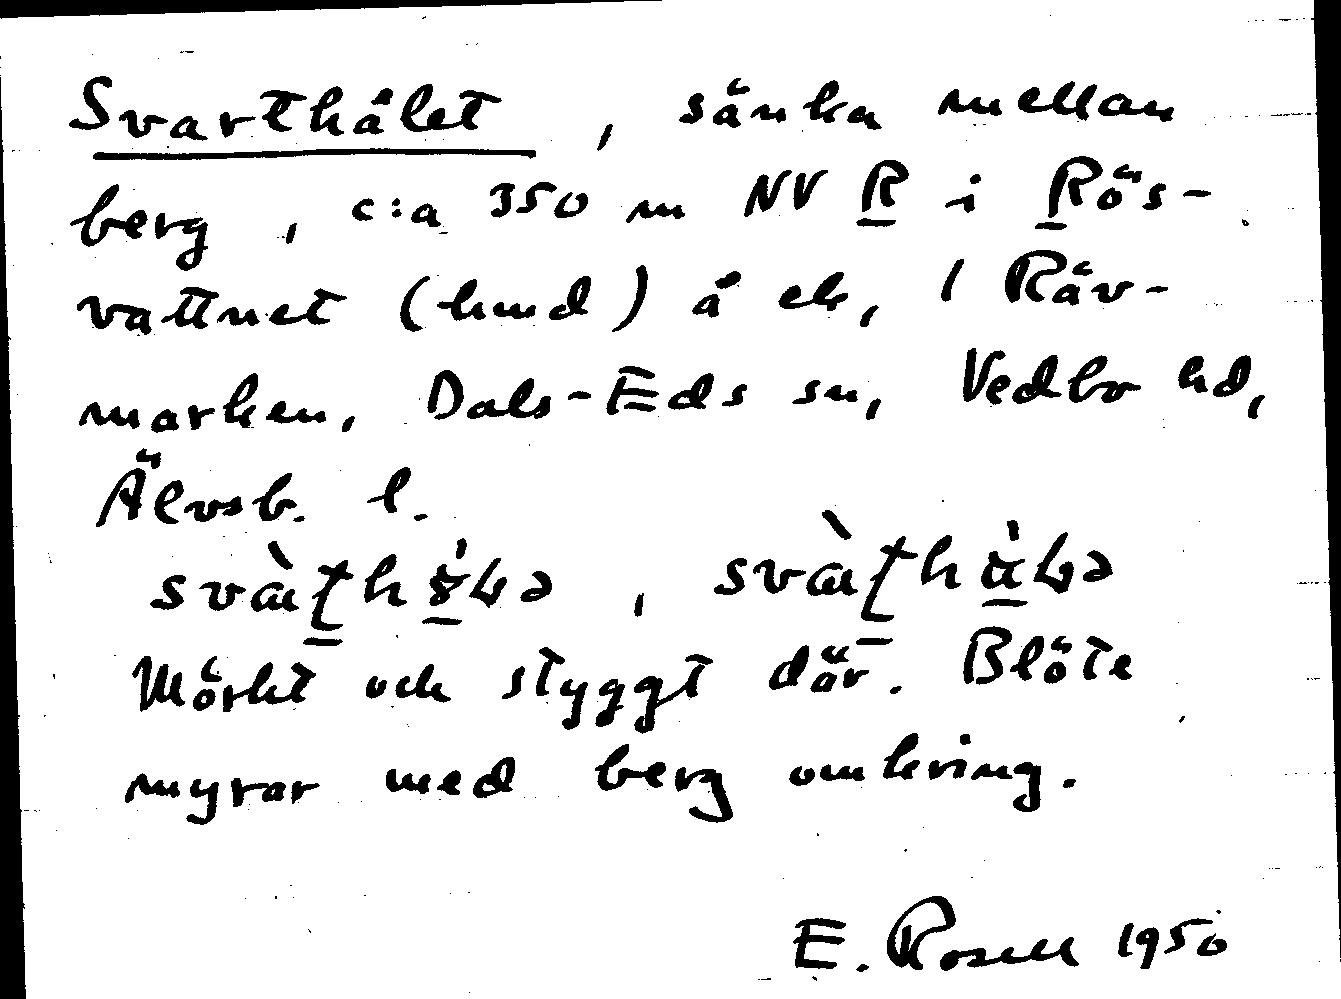 Svarthålet, sänka mellan
berg, c:a 350 m NV R i Rös-
vattnet (hmd) å ek, 1 Räv-
marken, Dals-Eds sn, Vedbo hd,
Älvsb. l.
Mörkt och styggt där. Blöte
myrar med berg omkring.
E. Rosell 1950